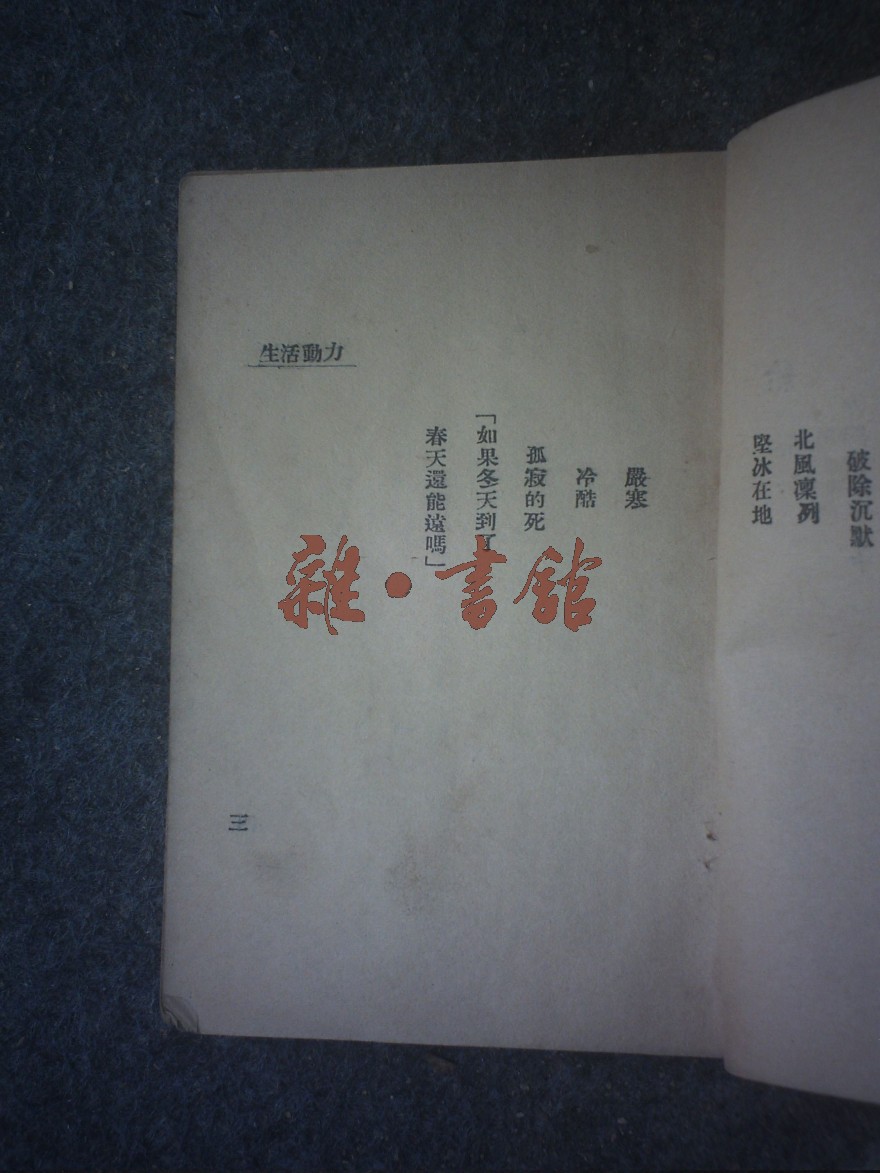 破除沉默
北風凜冽
堅冰在地
嚴寒
冷酷
孤寂的死
「如果冬天到了
春天還能遠嗎」
生活動力
三
雜·書館